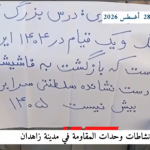 28 أغسطس 2026
درس بزرگ
یک و یک قیام در ۱۴۰۴
ست که بازگشت به فاشیست
ست نشانده سلطنتی سرابی
بیش نیست ۱۴۰۵
نشاطات وحدات المقاومة في مدينة زاهدان